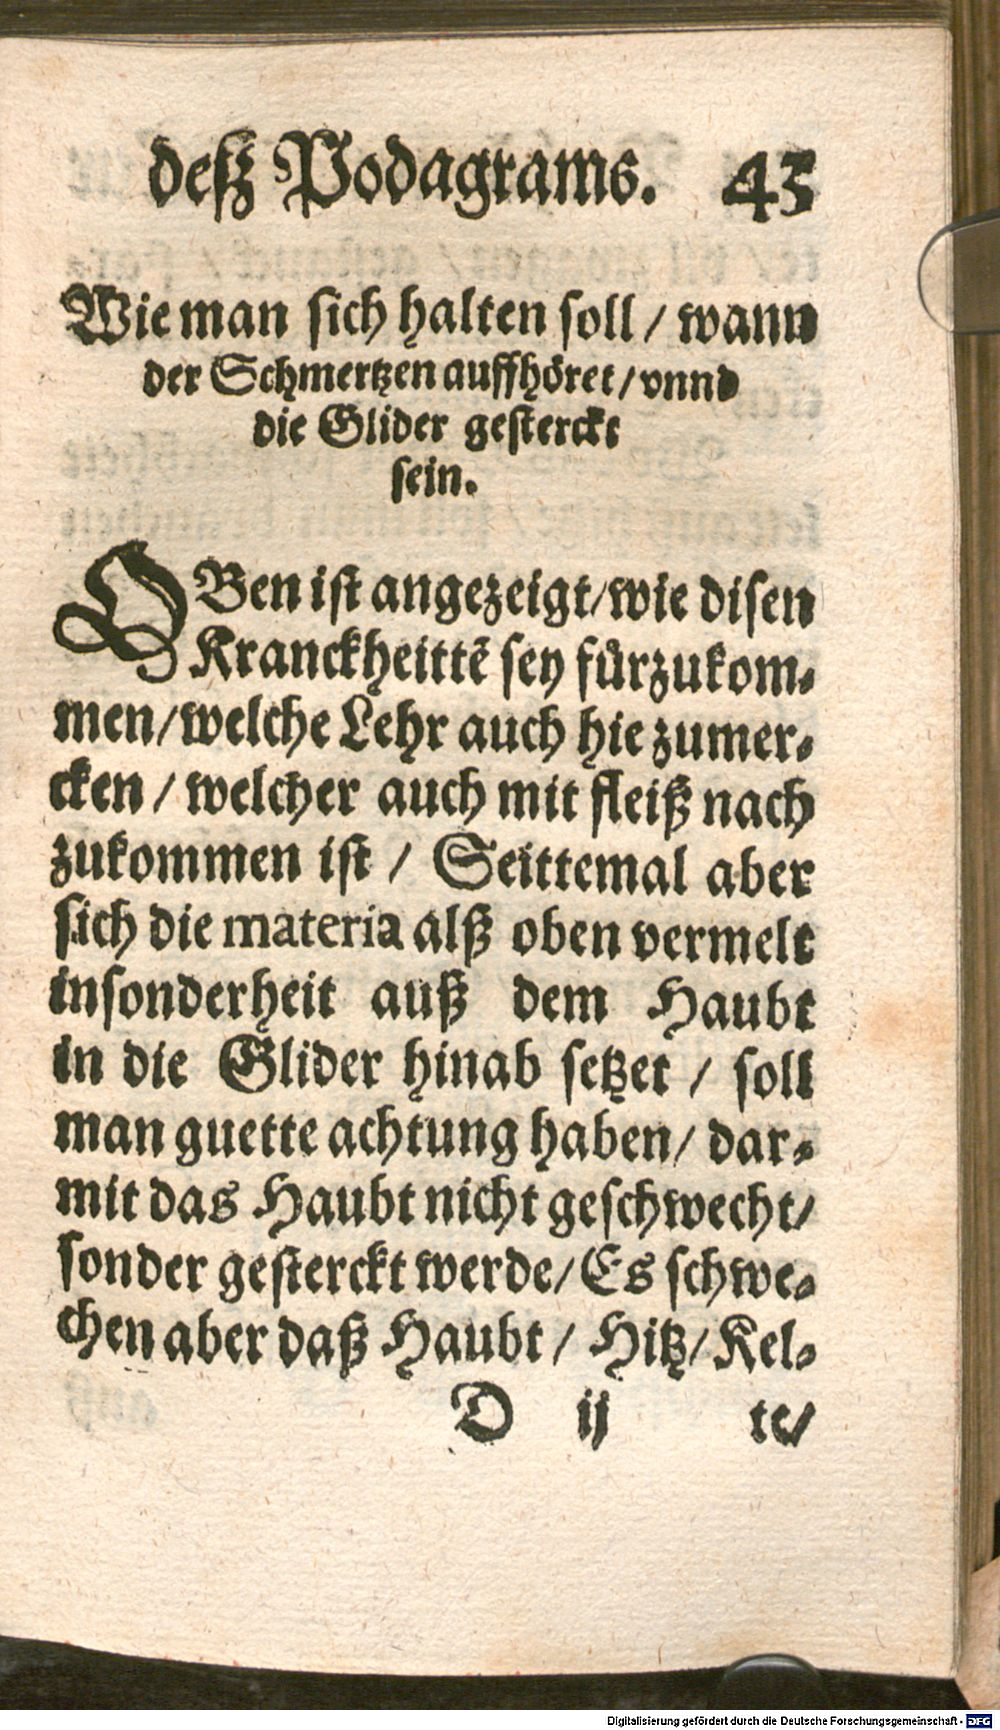 deß Podagrams. 43
Wie man sich halten soll / wann
der Schmertzen auffhöret / vnnd
die Glider gesterckt
sein.
OBen ist angezeigt / wie disen
Kranckheittẽ sey fürzukom⸗
men / welche Lehr auch hie zumer⸗
cken / welcher auch mit fleiß nach
zukommen ist / Seittemal aber
sich die materia alß oben vermelt
insonderheit auß dem Haubt
in die Glider hinab setzet / soll
man guette achtung haben / dar⸗
mit das Haubt nicht geschwecht /
sonder gesterckt werde / Es schwe⸗
chen aber daß Haubt / Hitz / Kel⸗
D ij te /
Digitalisierung gefördert durch die Deutsche Forschungsgemeinschaft - DFG